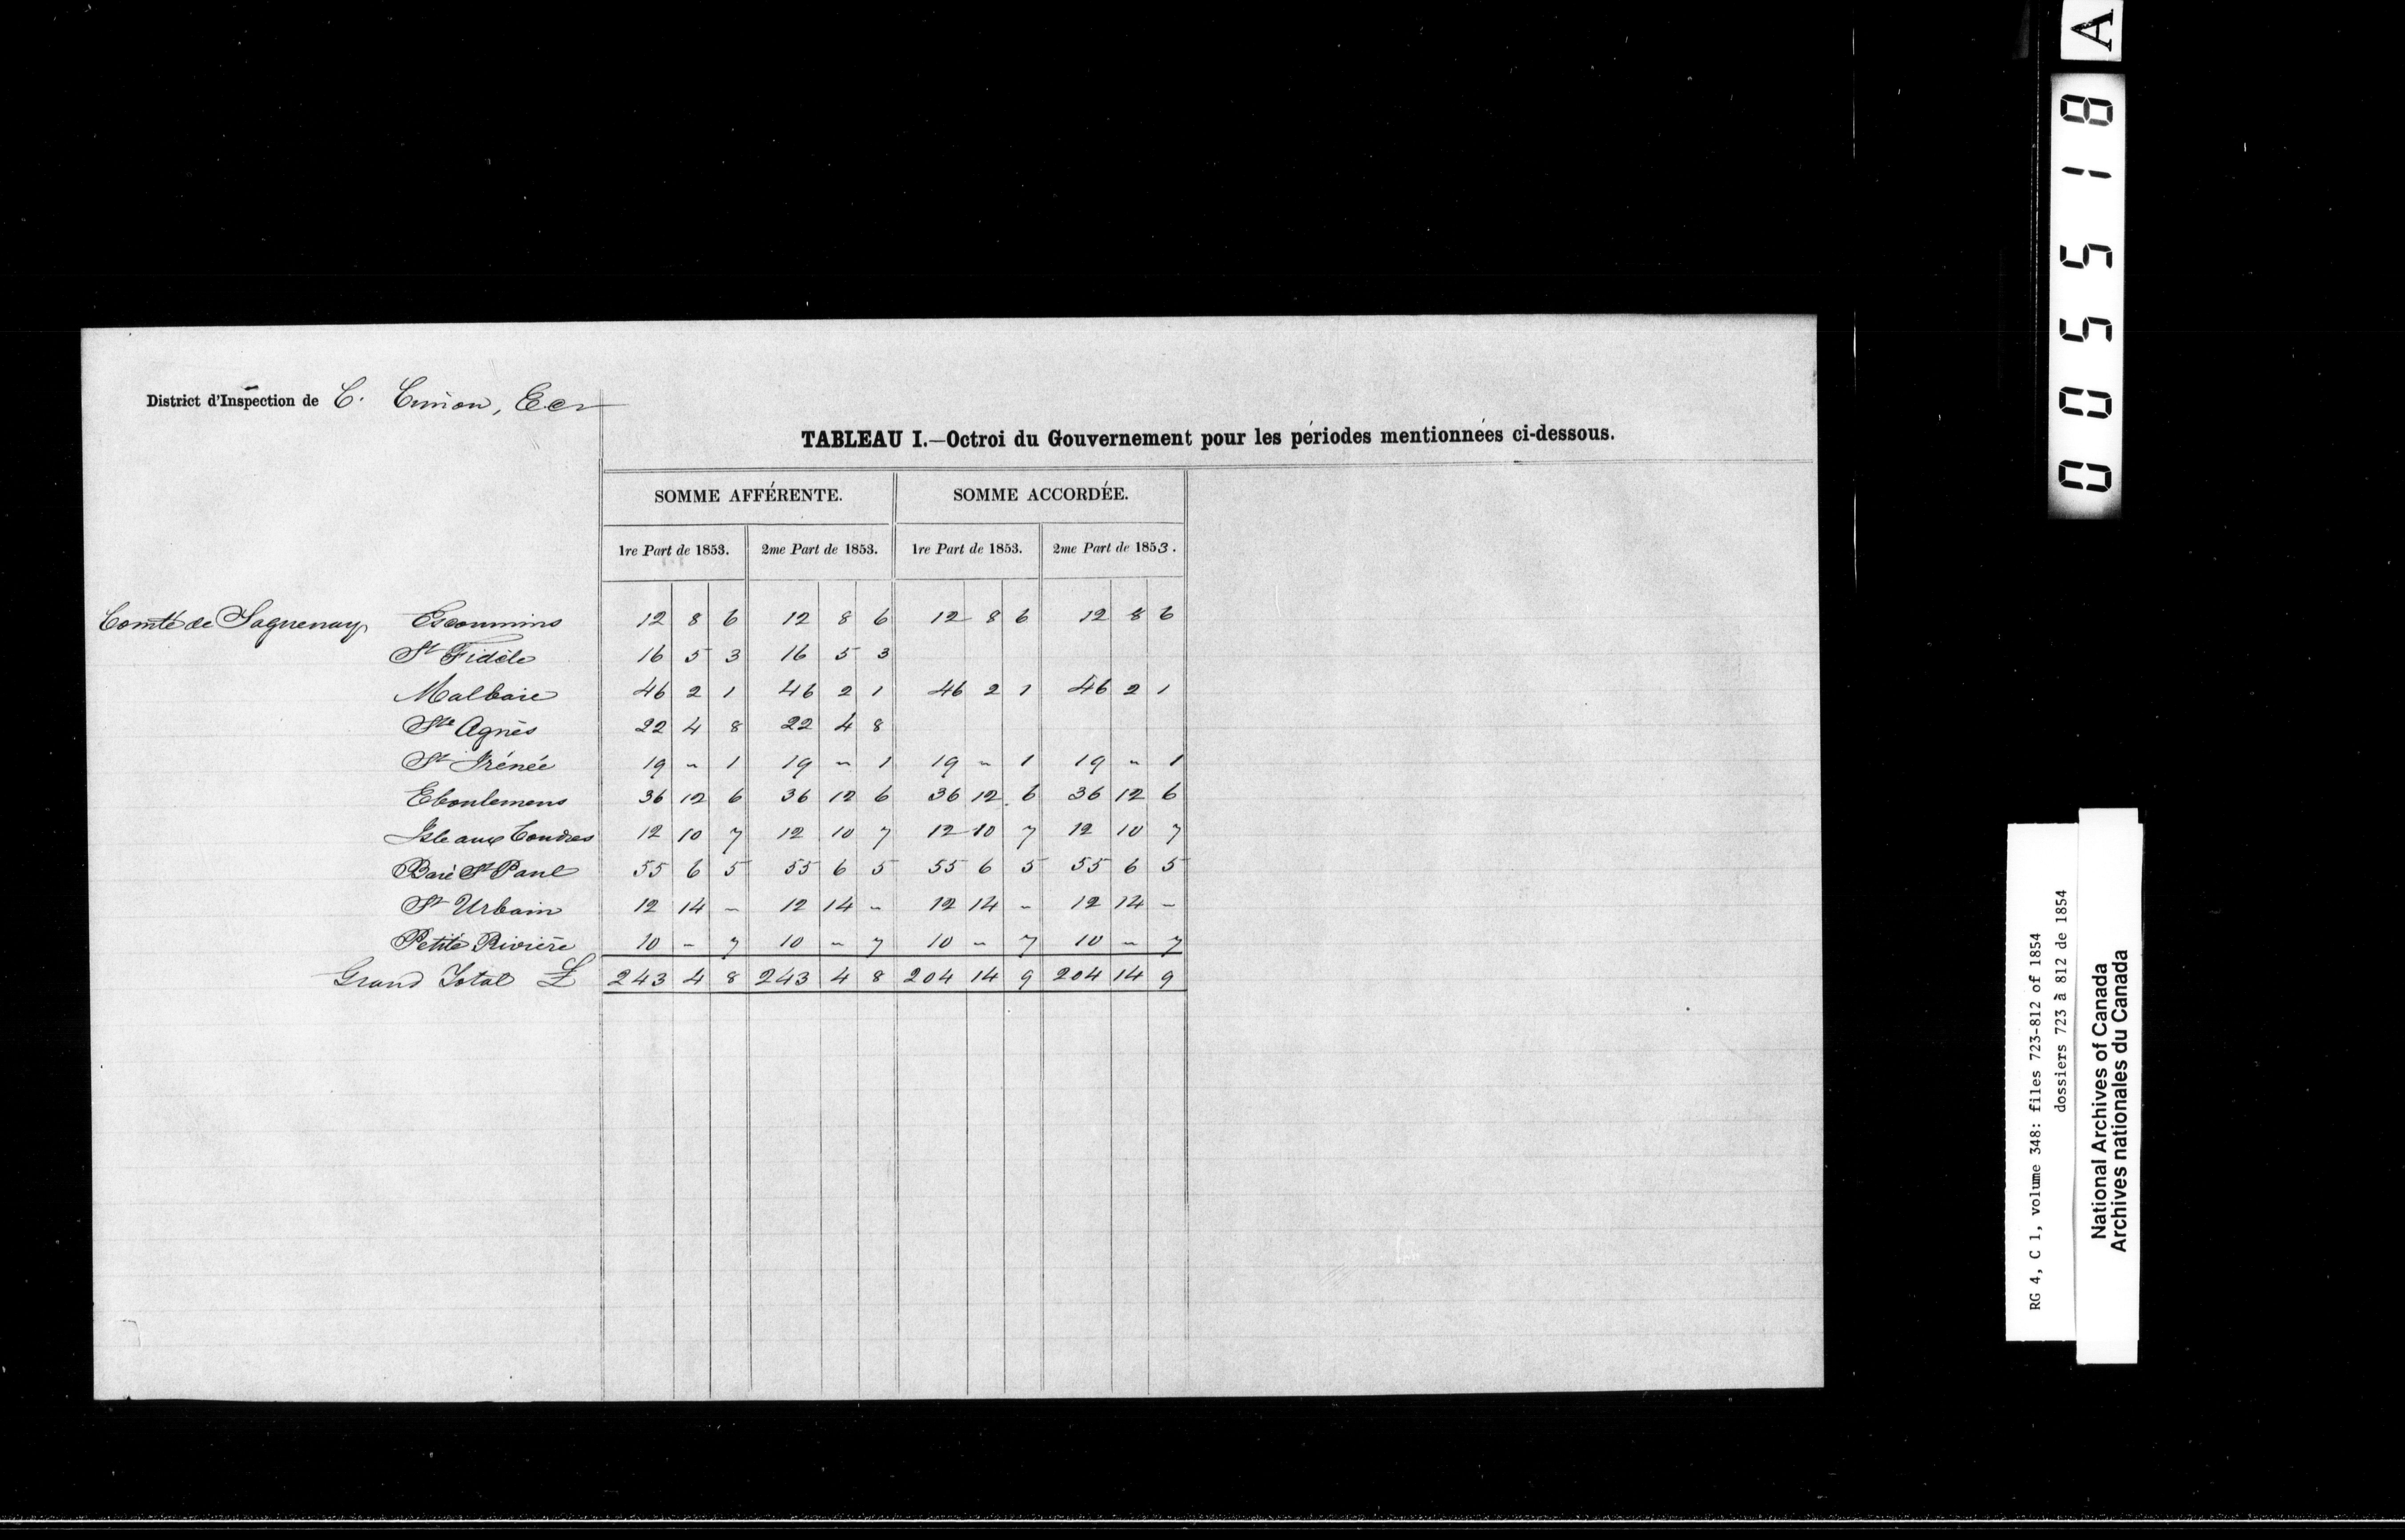 District d'Inspection de C. Cimon, Ecr
TABLEAU I.—Octroi du Gouvernement pour les périodes mentionnées ci-dessous.
SOMME AFFÉRENTE. SOMME ACCORDÉE.
1re Part de 1853. 2me Part de 1853. 1re Part de 1853. 2me Part de 1853.
Comté de Saguenay Escoumins 12 8 6 12 8 6 12 8 6 12 8 6
St Fidèle 16 5 3 16 5 3
Malbaie 46 2 1 46 2 1 46 2 1 46 2 1
Ste Agnès 22 4 8 22 4 8
St Irénée 19 " 1 19 " 1 19 " 1 19 " 1
Eboulemens 36 12 6 36 12 6 36 12 6 36 12 6
Isle aux Coudres 12 10 7 12 10 7 12 10 7 12 10 7
Baie St Paul 55 6 5 55 6 5 55 6 5 55 6 5
St Urbain 12 14 " 12 14 " 12 14 " 12 14 "
Petite Rivière 10 " 7 10 " 7 10 " 7 10 " 7
Grand Total £ 243 4 8 243 4 8 204 14 9 204 14 9
005518
A
RG 4, C 1, volume 348: files 723-812 of 1854
dossiers 723 à 812 de 1854
National Archives of Canada
Archives nationales du Canada